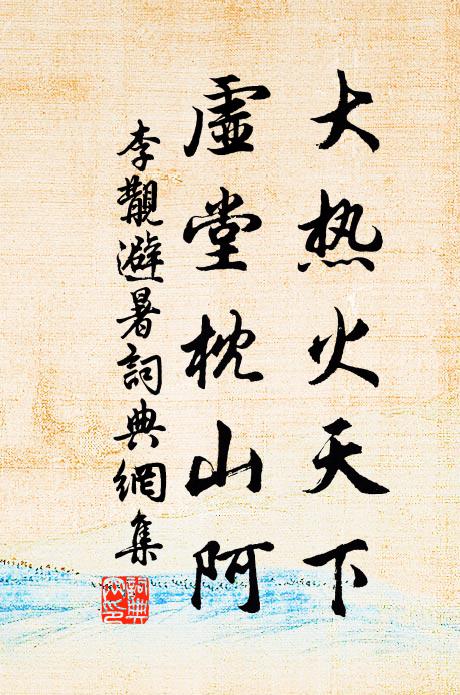 大热火天下
虚堂枕山阿
李覯避暑詞典網集